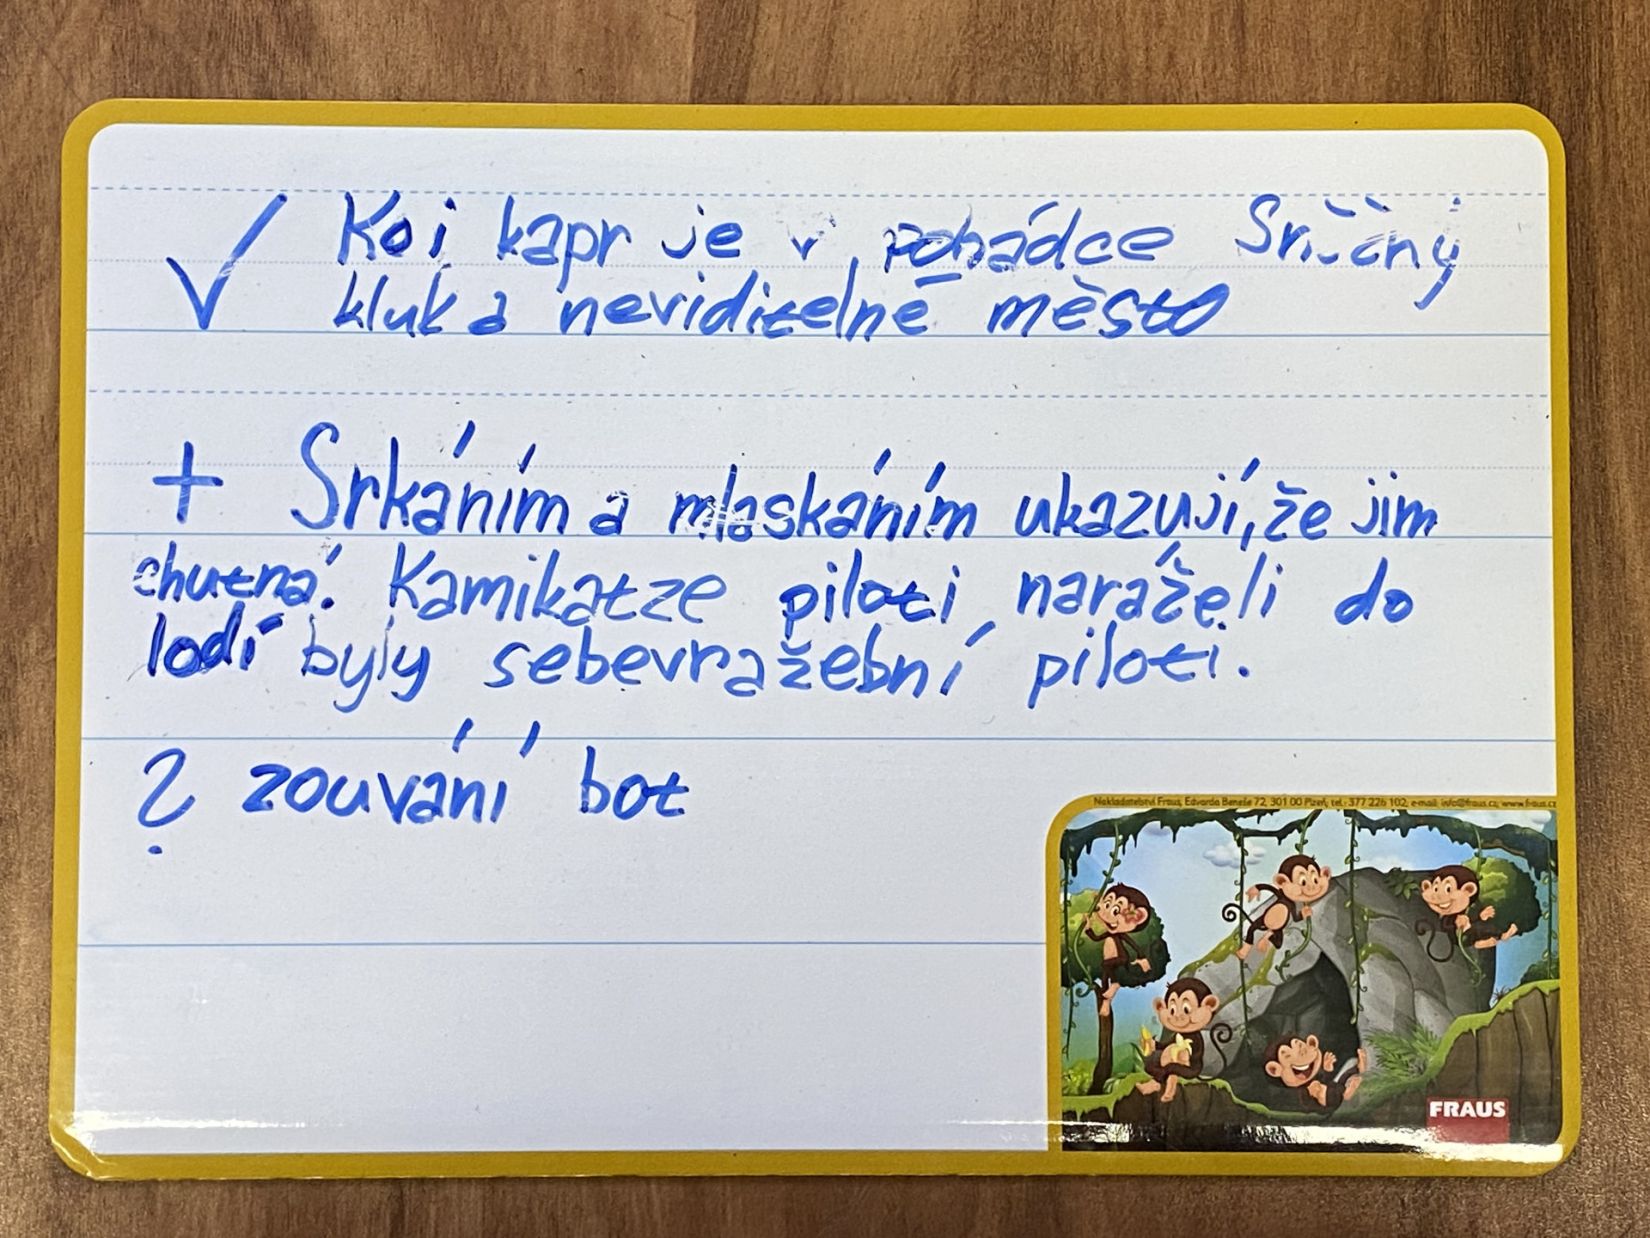 ✓ Koi kapr je v pohádce
kluk a neviditelné město
+ Srkáním a mlaskáním ukazují, že jim
chutná. Kamikatze piloti naráželi do
lodí byly sebevražební piloti.
? zouvání bot
Nakladatelství Fraus, Edvarda Beneše 72, 301 00 Plzeň; tel.: 377 226 102; e-mail: info@fraus.cz; www.fraus.cz
FRAUS